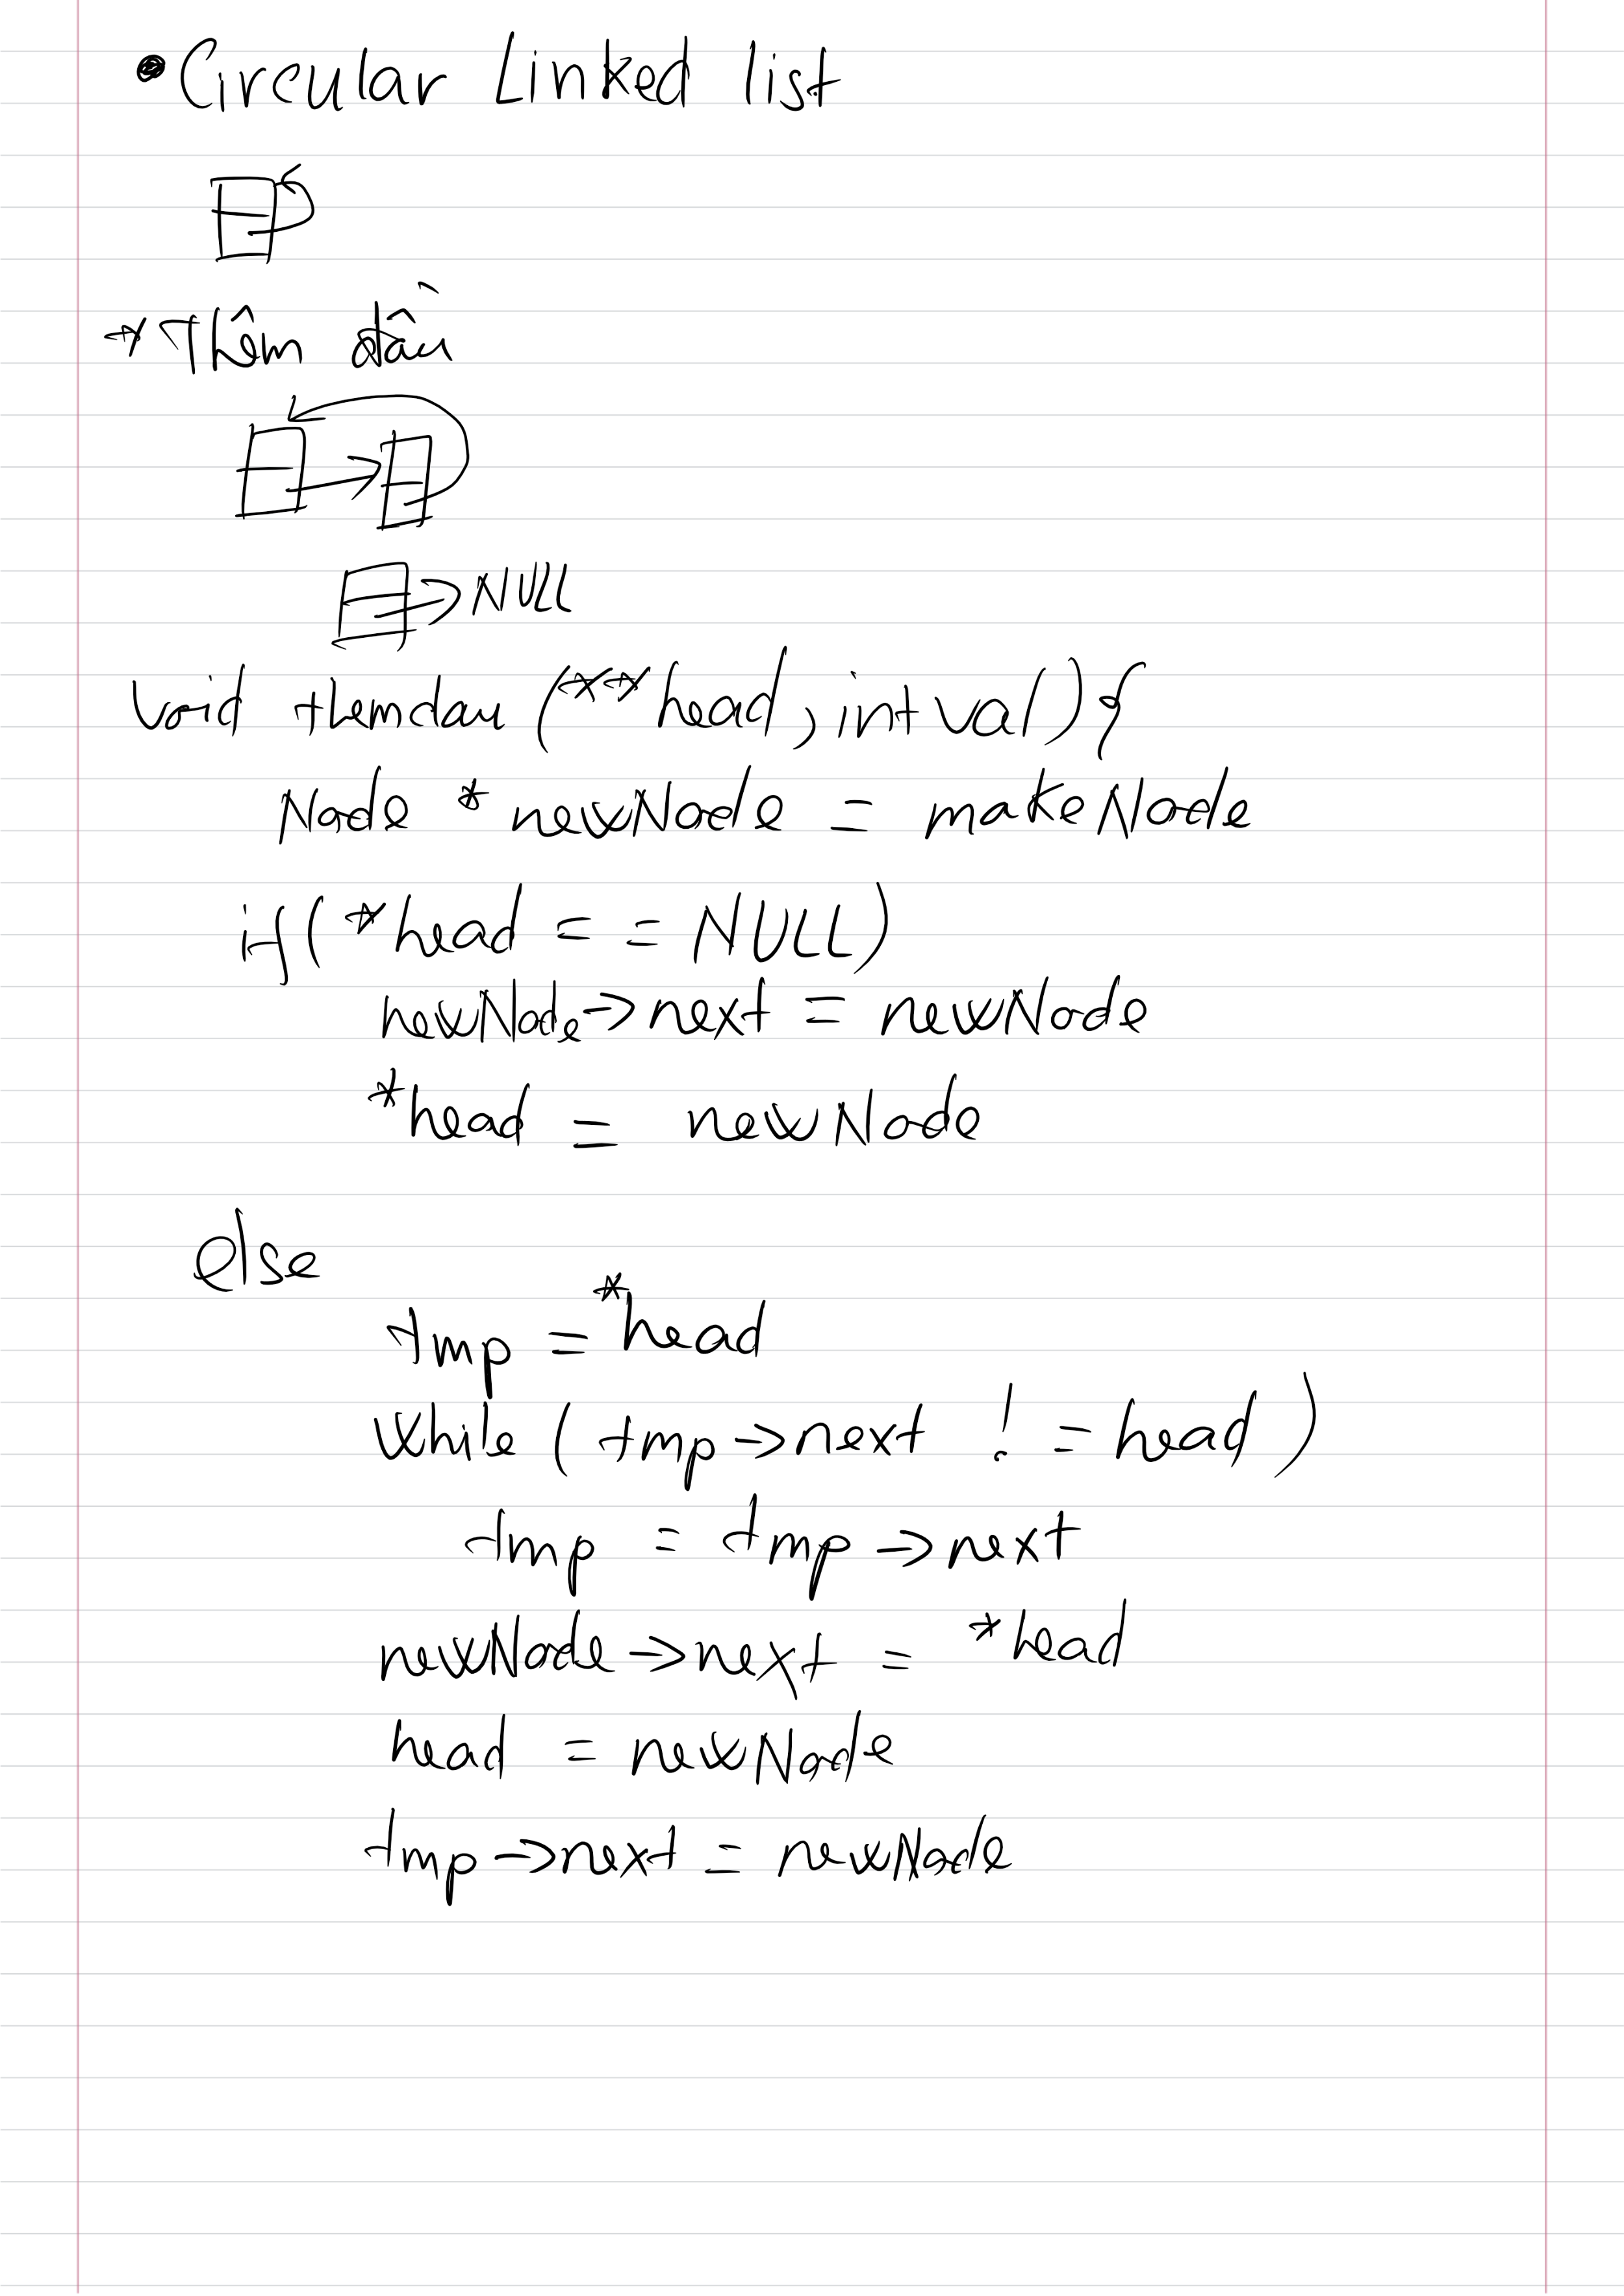 Circular Linked list
* Thêm đầu
NULL
void themdau (**head, int val){
Node * newNode = makeNode
if (*head == NULL)
newNode->next = newNode
*head = newNode
else
tmp = *head
while (tmp->next != head)
tmp = tmp->next
newNode->next = *head
head = newNode
tmp->next = newNode